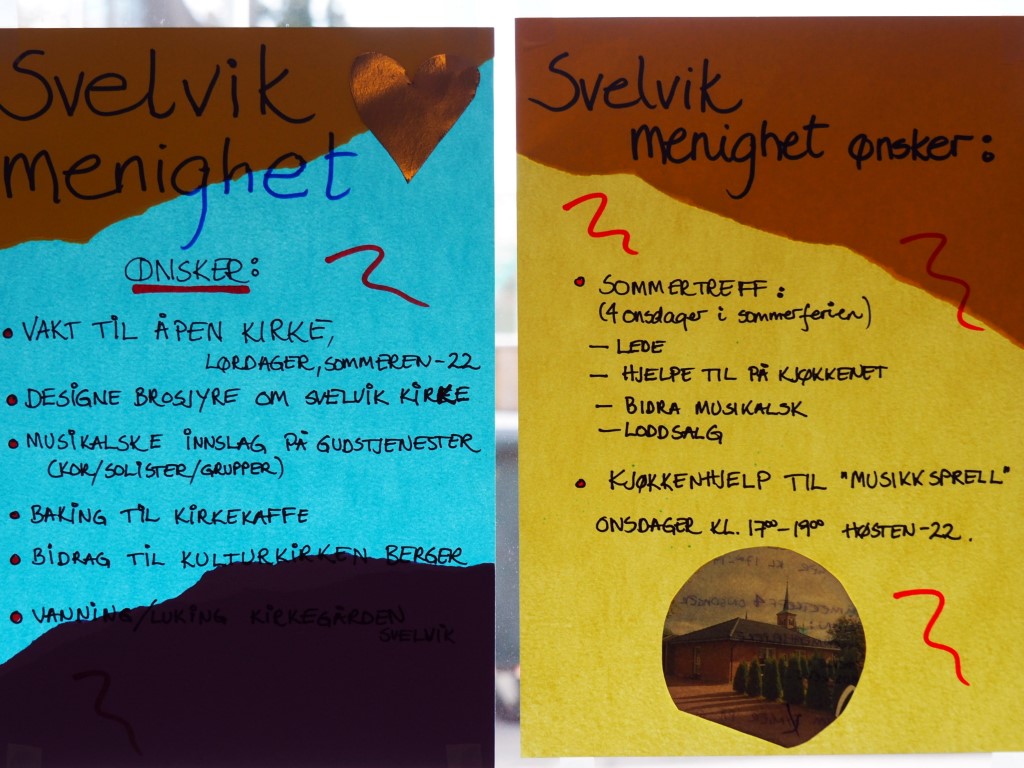 Svelvik
menighet
ØNSKER:
• VAKT TIL ÅPEN KIRKE,
LØRDAGER, SOMMEREN-22
• DESIGNE BROSJYRE OM SVELVIK KIRKE
• MUSIKALSKE INNSLAG PÅ GUDSTJENESTER
(KOR/SOLISTER/GRUPPER)
• BAKING TIL KIRKEKAFFE
• BIDRAG TIL KULTURKIRKEN BERGER
• VANNING/LUKING KIRKEGÅRDEN
SVELVIK
Svelvik
menighet ønsker:
• SOMMERTREFF:
(4 onsdager i sommerferien)
– LEDE
– HJELPE TIL PÅ KJØKKENET
– BIDRA MUSIKALSK
– LODDSALG
• KJØKKENHJELP TIL "MUSIKKSPRELL"
ONSDAGER KL. 17⁰⁰-19⁰⁰ HØSTEN-22.